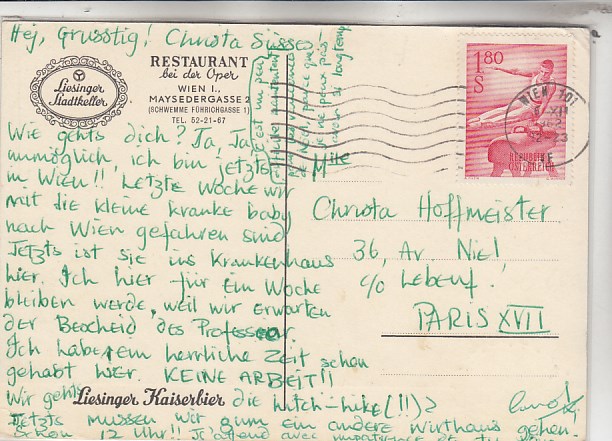 Hej, Grusstig! Christa Süsses
RESTAURANT
bei der Oper
WIEN I.,
MAYSEDERGASSE 2
(SCHWEMME FÜHRICHGASSE 1)
TEL. 52-21-67
Liesinger
Stadtkeller
Wie gehts dich? Ja, Ja,
unmöglich, ich bin jetzts
in Wien!! Letzte Woche wir
mit die kleine kranke baby
nach Wien gefahren sind
Jetzts ist sie ins Krankenhaus
hier. Ich hier für ein Woche
bleiben werde, weil wir erwarten
der Bescheid des Professor.
Ich habe ein herrliche Zeit schon
gehabt hier. KEINE ARBEIT!!
Wir gehts die hitch-hike (!!)?
Liesinger Kaiserbier
Jetzts mussen wir zum ein andere Wirthaus gehen!
Schon 12 Uhr!! J'attend avec impatience de
c'est un peu
si longtemp
1.80
S
REPUBLIK
ÖSTERREICH
WIEN 101
Mlle
Christa Hoffmeister
36, Av. Niel,
c/o Lebeuf.
PARIS XVII